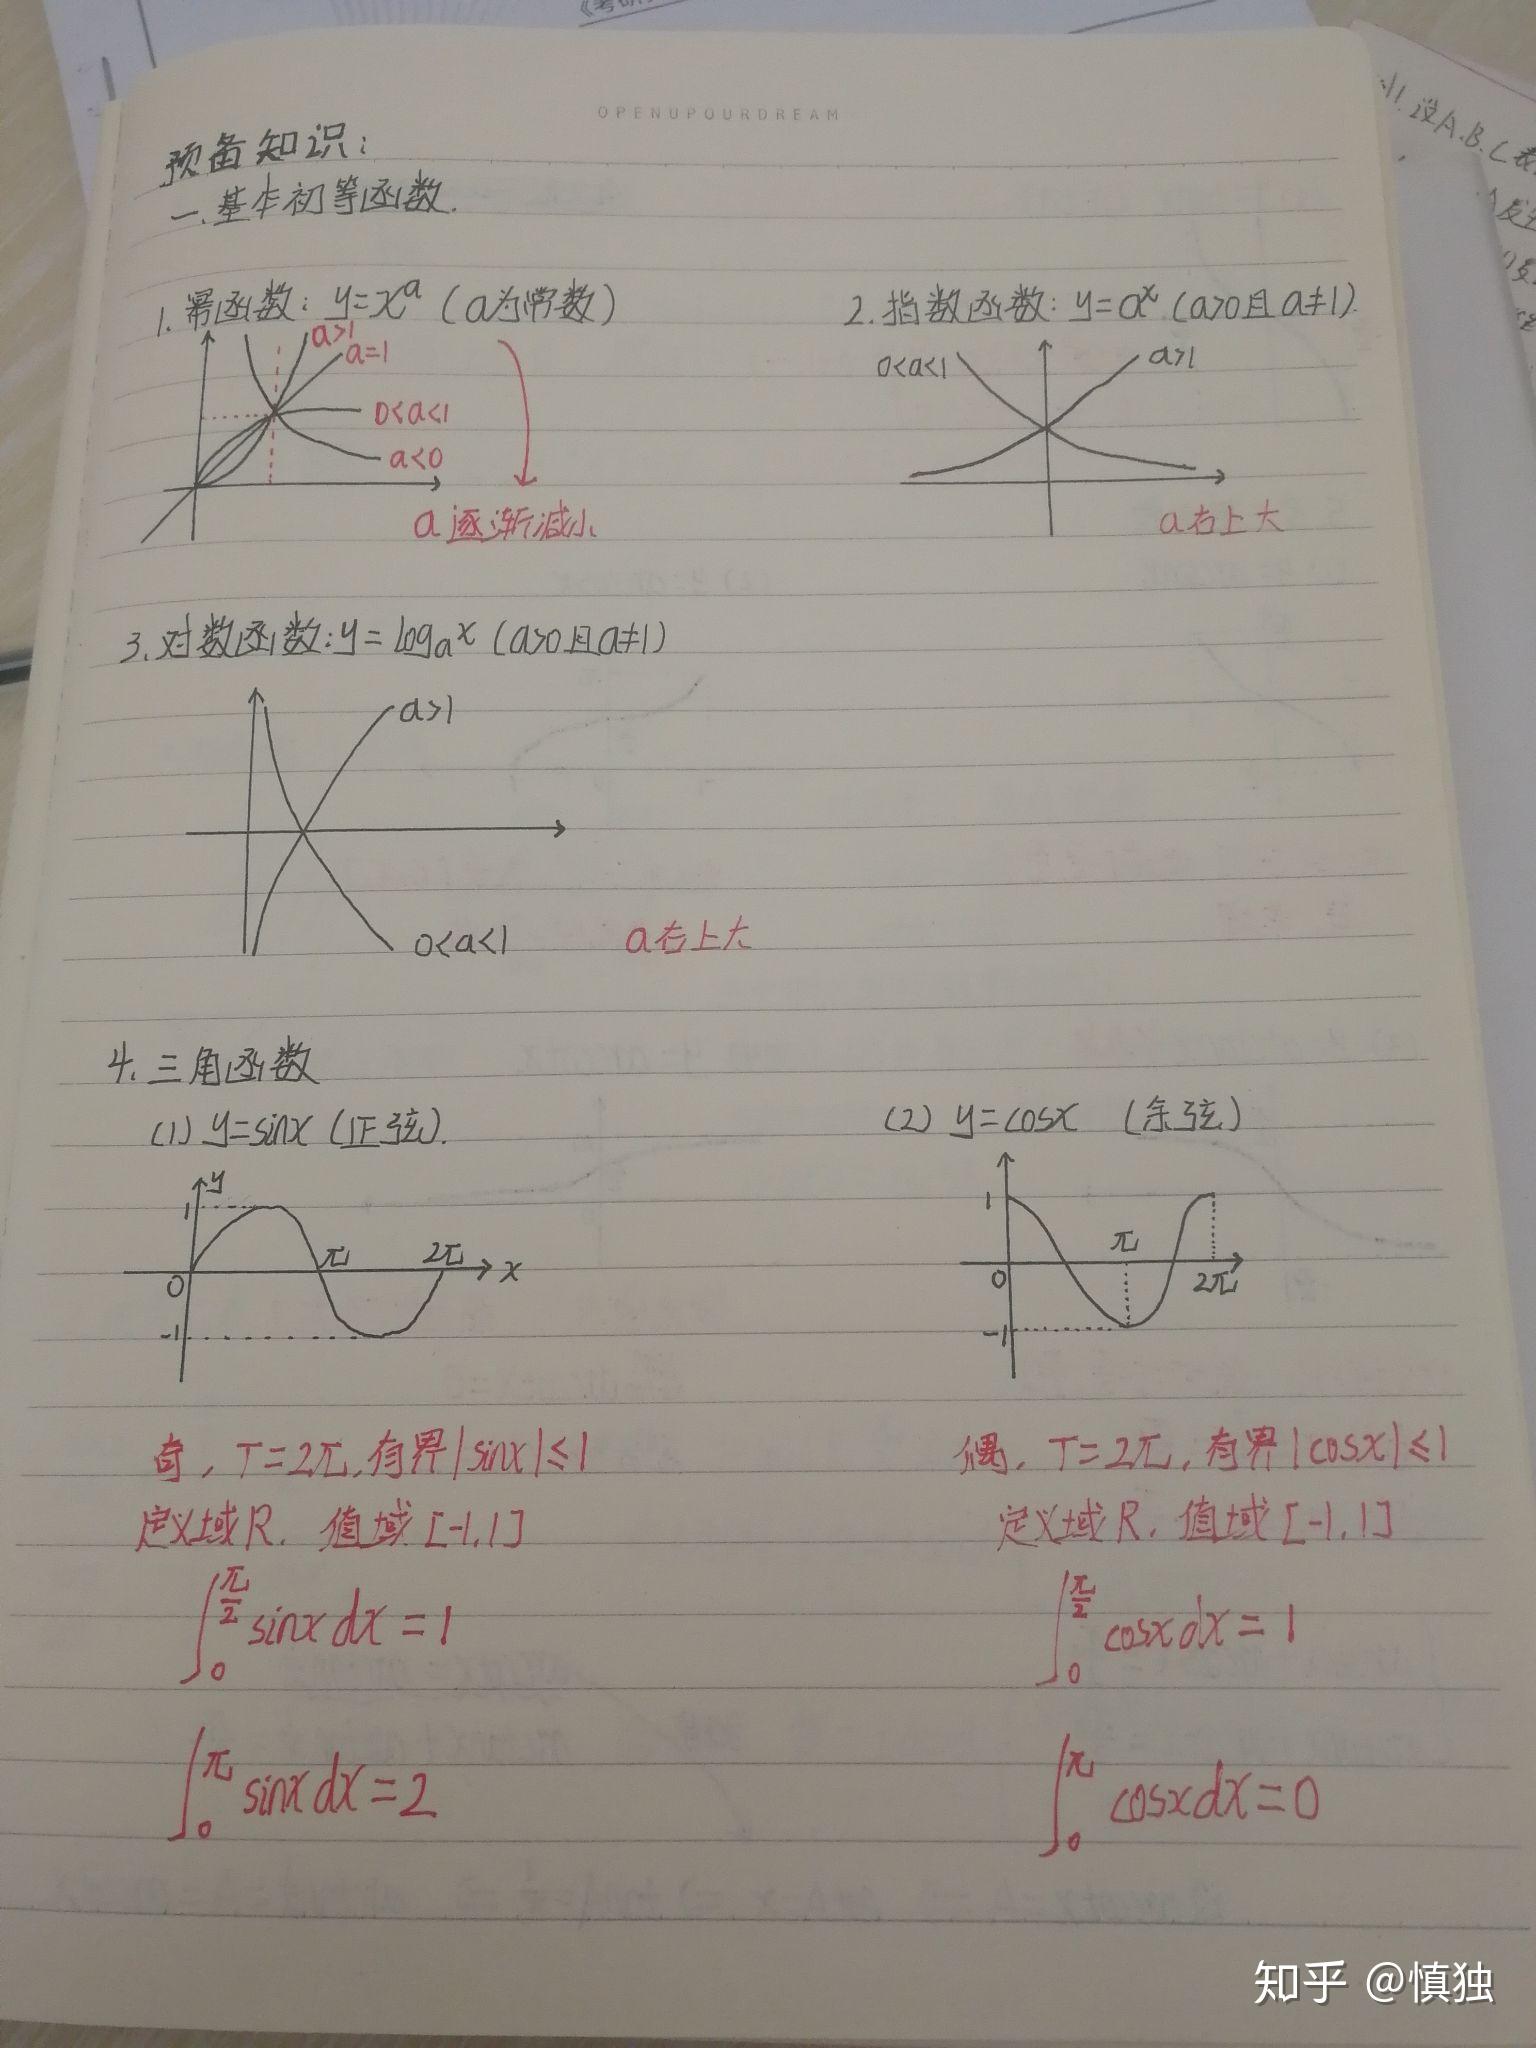 《考研
OPENUPOURDREAM
预备知识:
一.基本初等函数.
1.幂函数: y=xᵃ (a为常数)
a>1
a=1
0<a<1
a<0
a逐渐减小
2.指数函数: y=aˣ (a>0且a≠1).
0<a<1
a>1
a右上大
3.对数函数:y=logₐx (a>0且a≠1)
a>1
0<a<1
a右上大
4.三角函数
(1) y=sinx (正弦).
y
1
0
π
2π
x
-1
奇, T=2π,有界|sinx|≤1
定义域R. 值域[-1,1]
∫₀^(π/2) sinxdx=1
∫₀^π sinxdx=2
(2) y=cosx (余弦)
1
0
π
2π
-1
偶, T=2π, 有界|cosx|≤1
定义域R. 值域[-1,1]
∫₀^(π/2) cosxdx=1
∫₀^π cosxdx=0
设A.B.C
知乎 @慎独